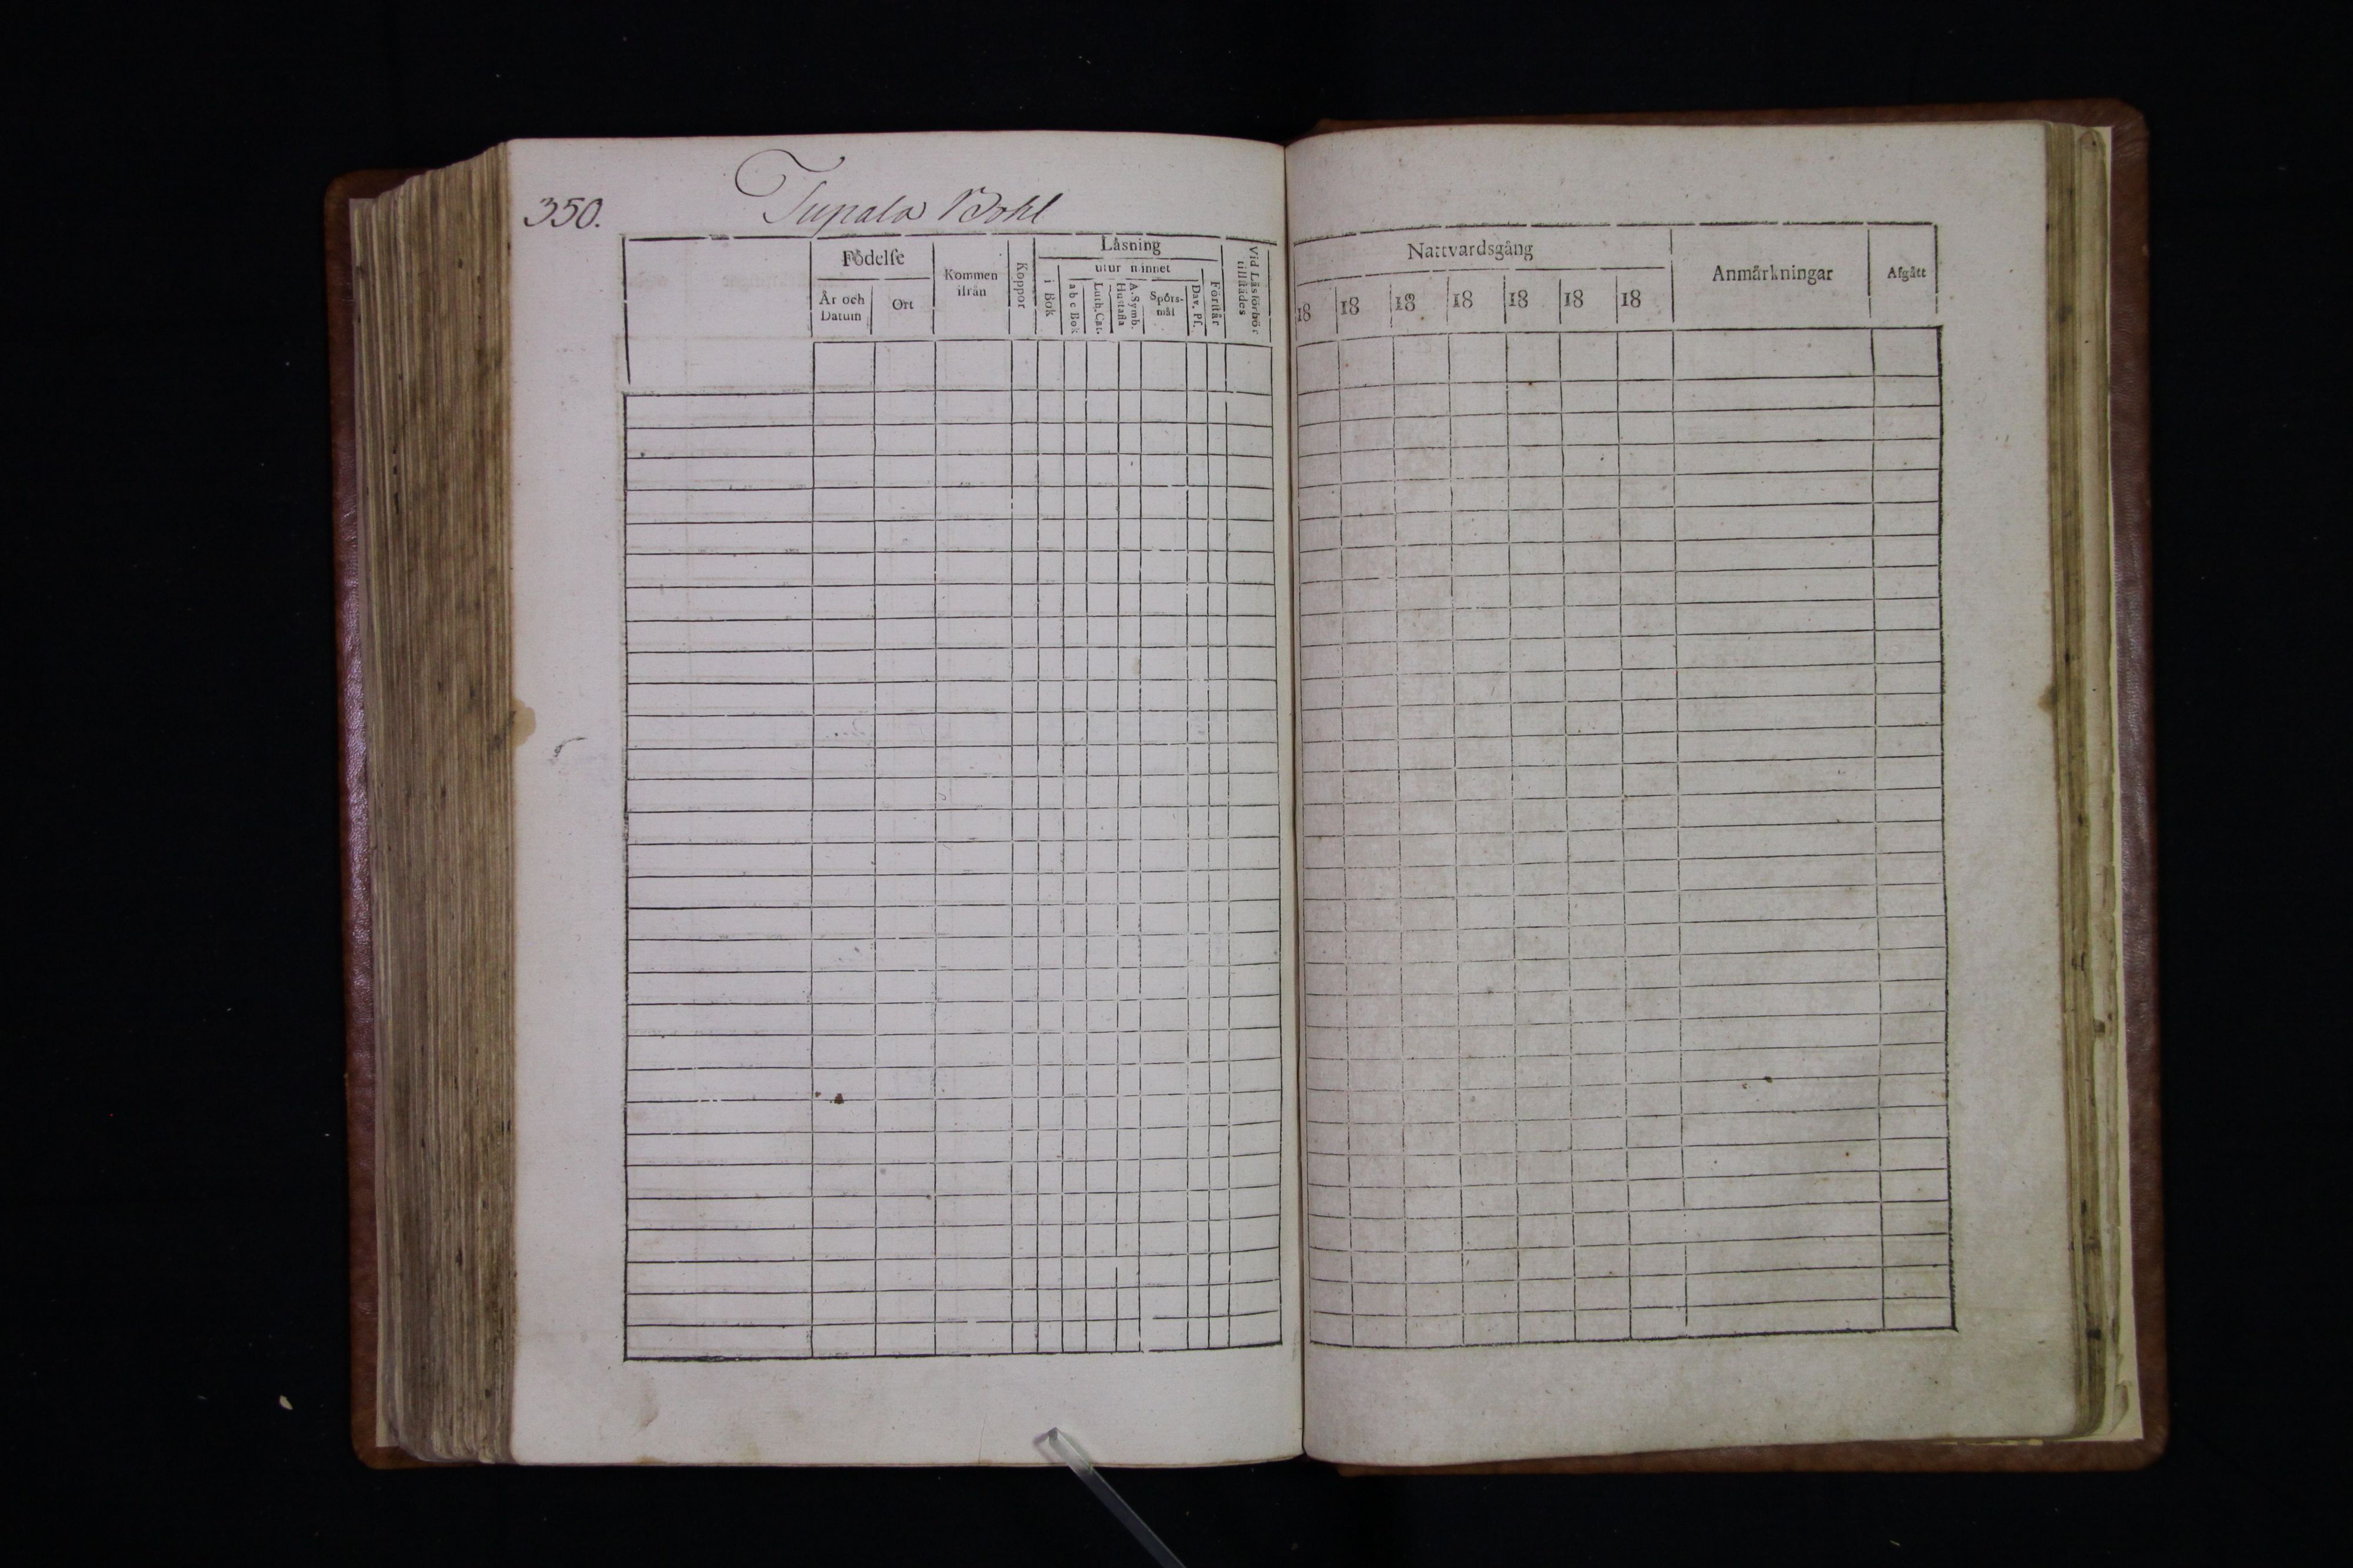 350.
Tupala Bohl
Födelse
År och Datum
Ort
Kommen ifrån
Koppor
Läsning
i Bok
utur minnet
a b c Bok
Luth. Cat.
Hustafla
A. Symb.
Spörs-
mål
Dav. Pſ.
Förſtår
Vid Läsförhör
tillſtädes
Nattvardsgång
18 18 18 18 18 18 18
Anmärkningar
Afgått